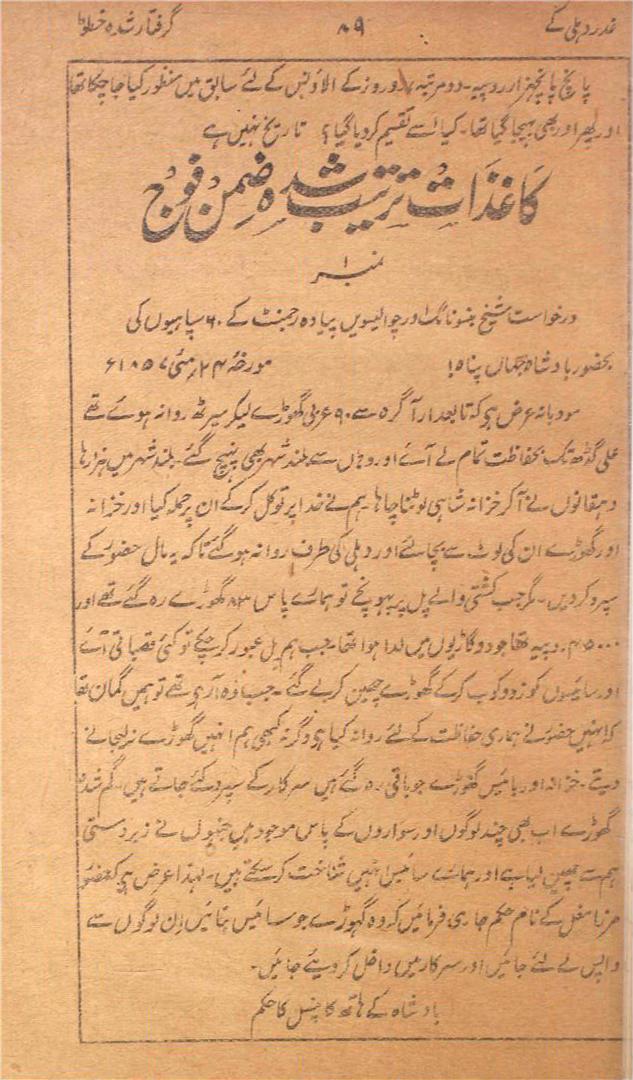 غدر دہلی کے ۸۹ گرفتار شدہ خطوط
پانچ پانچہزار روپیہ۔ دو مرتبہ ۷ روز کے الاؤنس کے لئے سابق میں منظور کیا جا چکا تھا
اور پھر اور بھی بہیجا گیا تھا۔ کیا اُسے تقسیم کر دیا گیا؟ تاریخ نہیں ہے
کاغذات ترتیب شدہ ضمن فوج
نمبر ۱
درخواست شیخ بنو نائک اور چوالیسویں پیادہ رجمنٹ کے ۶۰ سپاہیوں کی
بحضور بادشاہ جہاں پناہ! مورخہ ۲۴ مئی ۱۸۵۷ء
مودبانہ عرض ہی کہ تابعدار آگرہ سے ۹۰ عربی گھوڑے لیکر میرٹھ روانہ ہوئے تھے
علی گڈھ تک بحفاظت تمام لے آئے اور وہاں سے بلند شہر بھی پہنچ گئے۔ بلند شہر میں ہزارہا
دہقانوں نے آکر خزانہ شاہی لوٹنا چاہا۔ ہم نے خدا پر توکل کر کے ان پر حملہ کیا اور خزانہ
اور گھوڑے ان کی لوٹ سے بچائے اور دہلی کی طرف روانہ ہو گئے تاکہ یہ مال حضور کے
سپرد کر دیں۔ مگر جب کشتی والے پل پر پہونچے تو ہمارے پاس ۸۳ گھوڑے رہ گئے تھے اور
۴۵۰۰۰ روپیہ تھا جو دو گاڑیوں میں لدا ہوا تھا۔ جب ہم پل عبور کر چکے تو کئی قصباتی آئے
اور سائیسوں کو زدوکوب کر کے گھوڑے چھین کر لے گئے۔ جب وہ آ رہی تھے تو ہمیں گمان تھا
کہ انہیں حضور نے ہماری حفاظت کے لئے روانہ کیا ہی وگرنہ کبھی ہم انہیں گھوڑے نہ لیجانے
دیتے۔ خزانہ اور بائیس گھوڑے جو باقی رہ گئے ہیں سرکار کے سپرد کئے جاتے ہیں۔ گم شدہ
گھوڑے اب بھی چند لوگوں اور سواروں کے پاس موجود ہیں جنہوں نے زبردستی
ہم سے چھین لیا ہے اور ہمارے سائیس انہیں شناخت کر سکتے ہیں۔ لہذا عرض ہی کہ حضور
مرزا مغل کے نام حکم جاری فرمائیں کہ وہ گہوڑے جو سائیس بتائیں اِن لوگوں سے
واپس لے لئے جائیں اور سرکار میں داخل کر دیئے جائیں۔
بادشاہ کے ہاتھ کا پنسل کا حکم